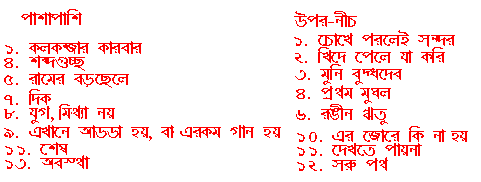 পাশাপাশি
১. কলকব্জার কারবার
৪. শব্দগুচ্ছ
৫. রামের বড়ছেলে
৭. দিক
৮. যুগ, মিথ্যা নয়
৯. এখানে আডডা হয়, বা এরকম গান হয়
১১. শেষ
১৩. অবস্থা
উপর-নীচ
১. চোখে পরলেই সম্দর
২. খিদে পেলে যা করি
৩. মুনি বুদ্ধদেব
৪. প্রথম মুঘল
৬. রঙীন ঋতু
১০. এর জোরে কি না হয়
১১. দেখতে পায়না
১২. সরু পথ